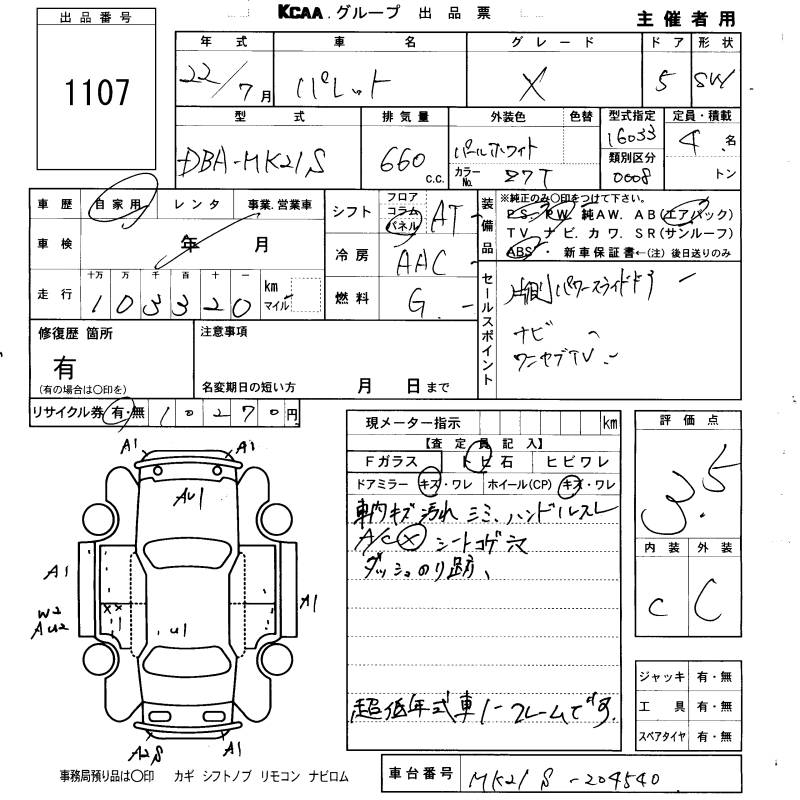 KCAA. グループ 出品票
主催者用
出品番号
1107
年式 車名 グレード ドア 形状
22/7月 パレット X 5 SW
型式 排気量 外装色 色替 型式指定 定員・積載
DBA-MK21S 660 c.c. パールホワイト 16033 4名
カラーNo. Z7T 類別区分 0008 トン
車歴 自家用 レンタ 事業.営業車
シフト フロア コラム パネル AT
車検 年 月
冷房 AAC
走行 十万 万 千 百 十 一 km マイル
103320
燃料 G.
装備品 ※純正のみ〇印をつけて下さい。
PS. PW. 純AW. AB(エアバック)
TV. ナビ. カワ. SR(サンルーフ)
ABS. 新車保証書←(注)後日送りのみ
セールスポイント
片側パワースライドドア
ナビ
ワンセグTV
修復歴 箇所
有
(有の場合は〇印を)
注意事項
名変期日の短い方 月 日まで
リサイクル券 有・無 10270円
現メーター指示 km
【査定員記入】
Fガラス トビ石 ヒビワレ
ドアミラー キズ・ワレ ホイール(CP) キズ・ワレ
車内キズ 汚れ シミ、ハンドルスレ
A/C X シートコゲ穴
ダッシュのり跡、
超低年式車ノークレームです.
評価点
3.5
内装 外装
C C
ジャッキ 有・無
工具 有・無
スペアタイヤ 有・無
A1 A1
AU1
A1
W2
AU2
U1
A1
A2S A1
事務局預り品は〇印 カギ シフトノブ リモコン ナビロム
車台番号 MK21S-204540